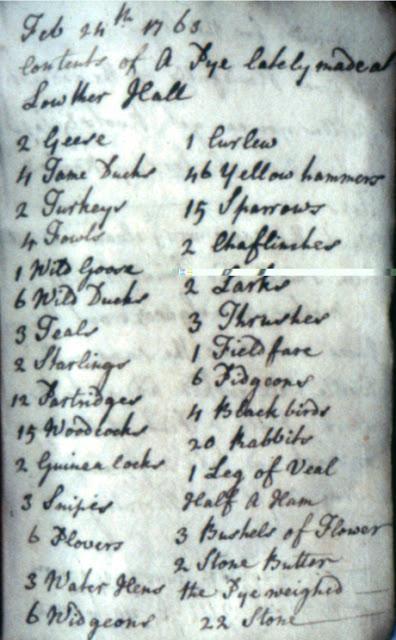 Feb 24th 1763
contents of A Pye lately made at
Lowther Hall
2 Geese
4 Tame Ducks
2 Turkeys
4 Fowls
1 Wild Goose
6 Wild Ducks
3 Teals
2 Starlings
12 Partridges
15 Woodcocks
2 Guinea Cocks
3 Snipes
6 Plovers
3 Water Hens
6 Widgeons
1 Curlew
46 Yellow hammers
15 Sparrows
2 Chaflinches
2 Larks
3 Thrushes
1 Fieldfare
6 Pidgeons
4 Blackbirds
20 Rabbits
1 Leg of Veal
Half A Ham
3 Bushels of Flower
2 Stone Butter
the Pye weighed
22 Stone